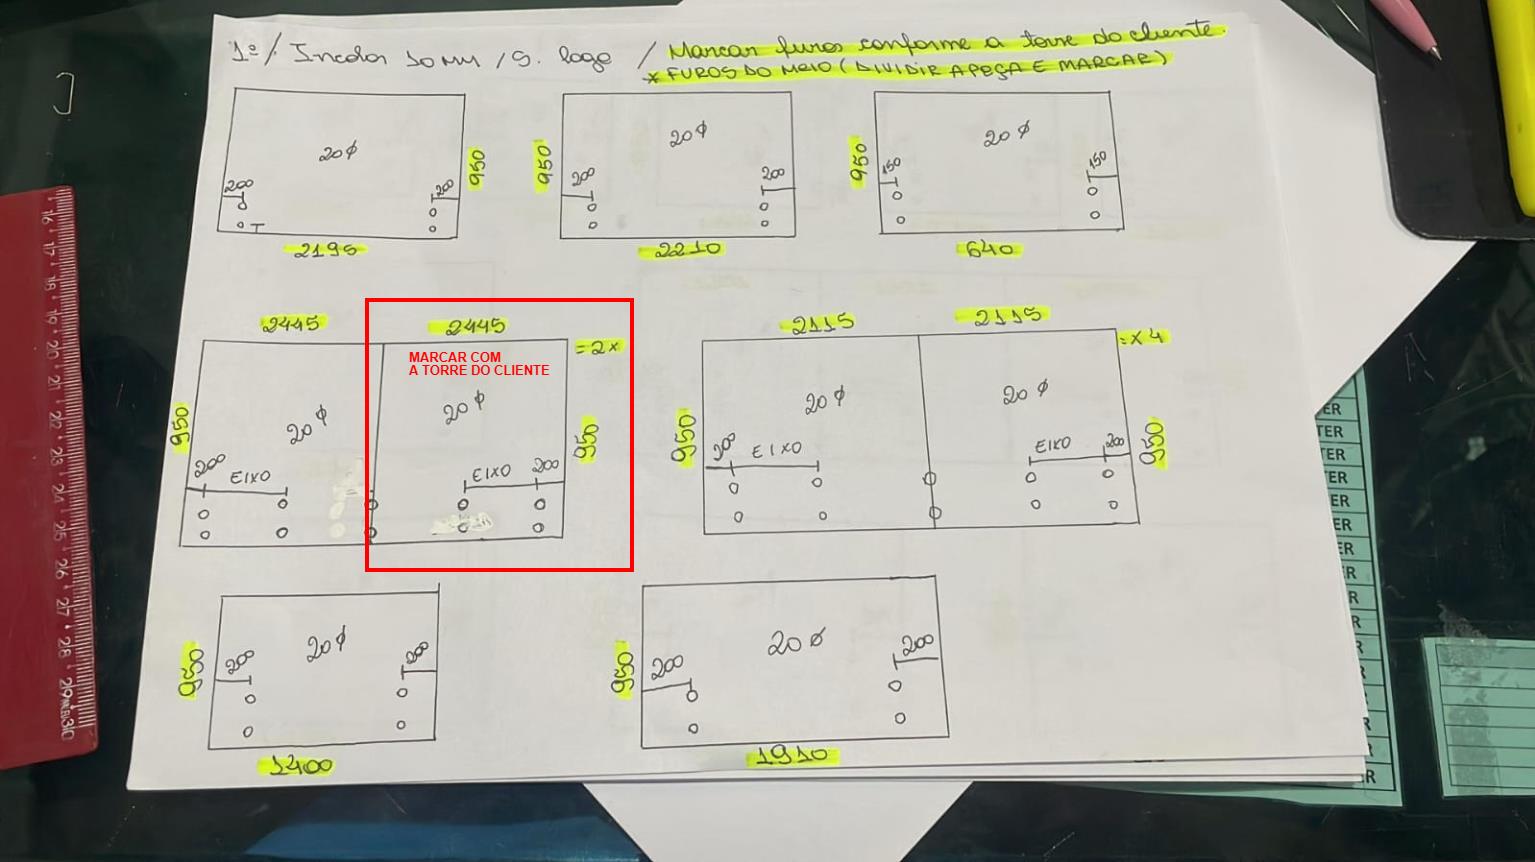 1º / Incolor 10 MM / S. logo / Marcar furos conforme a torre do cliente.
* FUROS DO MEIO (DIVIDIR A PEÇA E MARCAR)
20 ϕ
200
200
950
2195
950
20 ϕ
200
200
2210
950
20 ϕ
150
150
640
2445
2445
= 2x
MARCAR COM
A TORRE DO CLIENTE
950
20 ϕ
20 ϕ
950
200
EIXO
EIXO
200
2115
2115
= x 4
950
20 ϕ
20 ϕ
950
200
EIXO
EIXO
200
950
20 ϕ
200
200
1400
950
20 ϕ
200
200
1910
16
17
18
19
20
21
22
23
24
25
26
27
28
29
30
ER
TER
TER
TER
ER
ER
ER
ER
ER
R
R
R
R